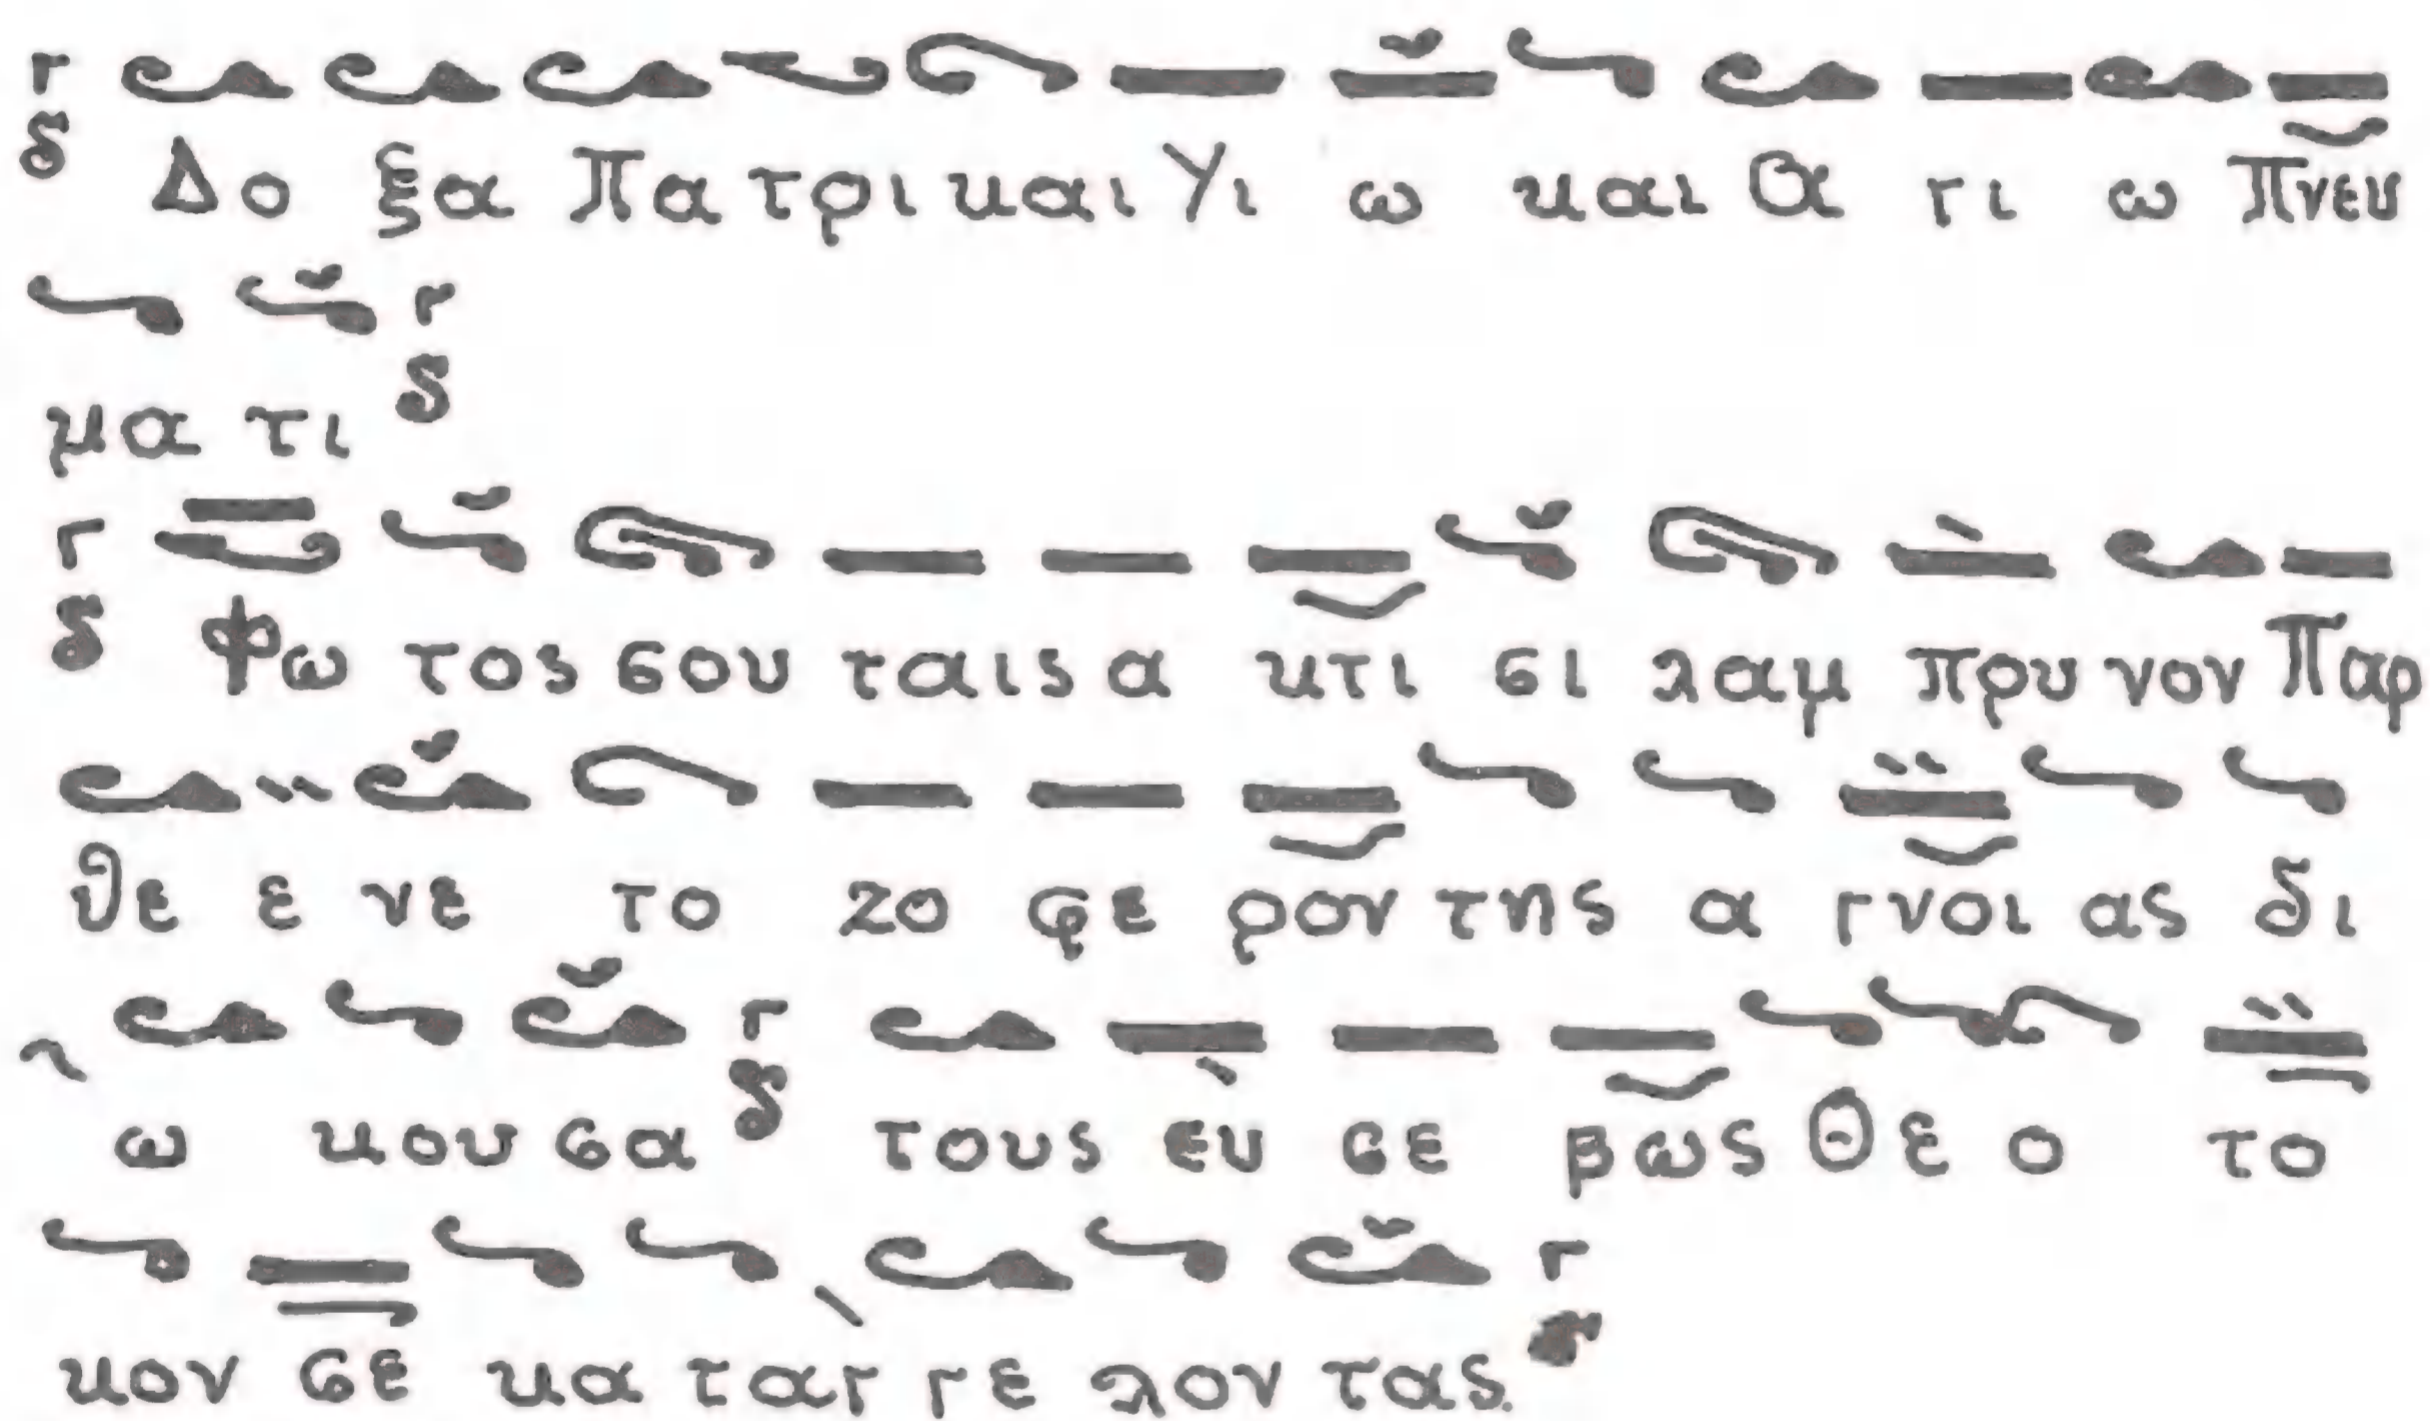 Γ δ Δο ξα Πα τρι και Υι ω και Α γι ω Πνευ
μα τι Γ δ
Γ δ Φω τος σου ταις α κτι σι λαμ πρυ νον Παρ
θε ε νε το ζο φε ρον της α γνοι ας δι
ω κου σα Γ δ τους ευ σε βως Θε ο το
κον σε κα ταγ γε λον τας. Γ